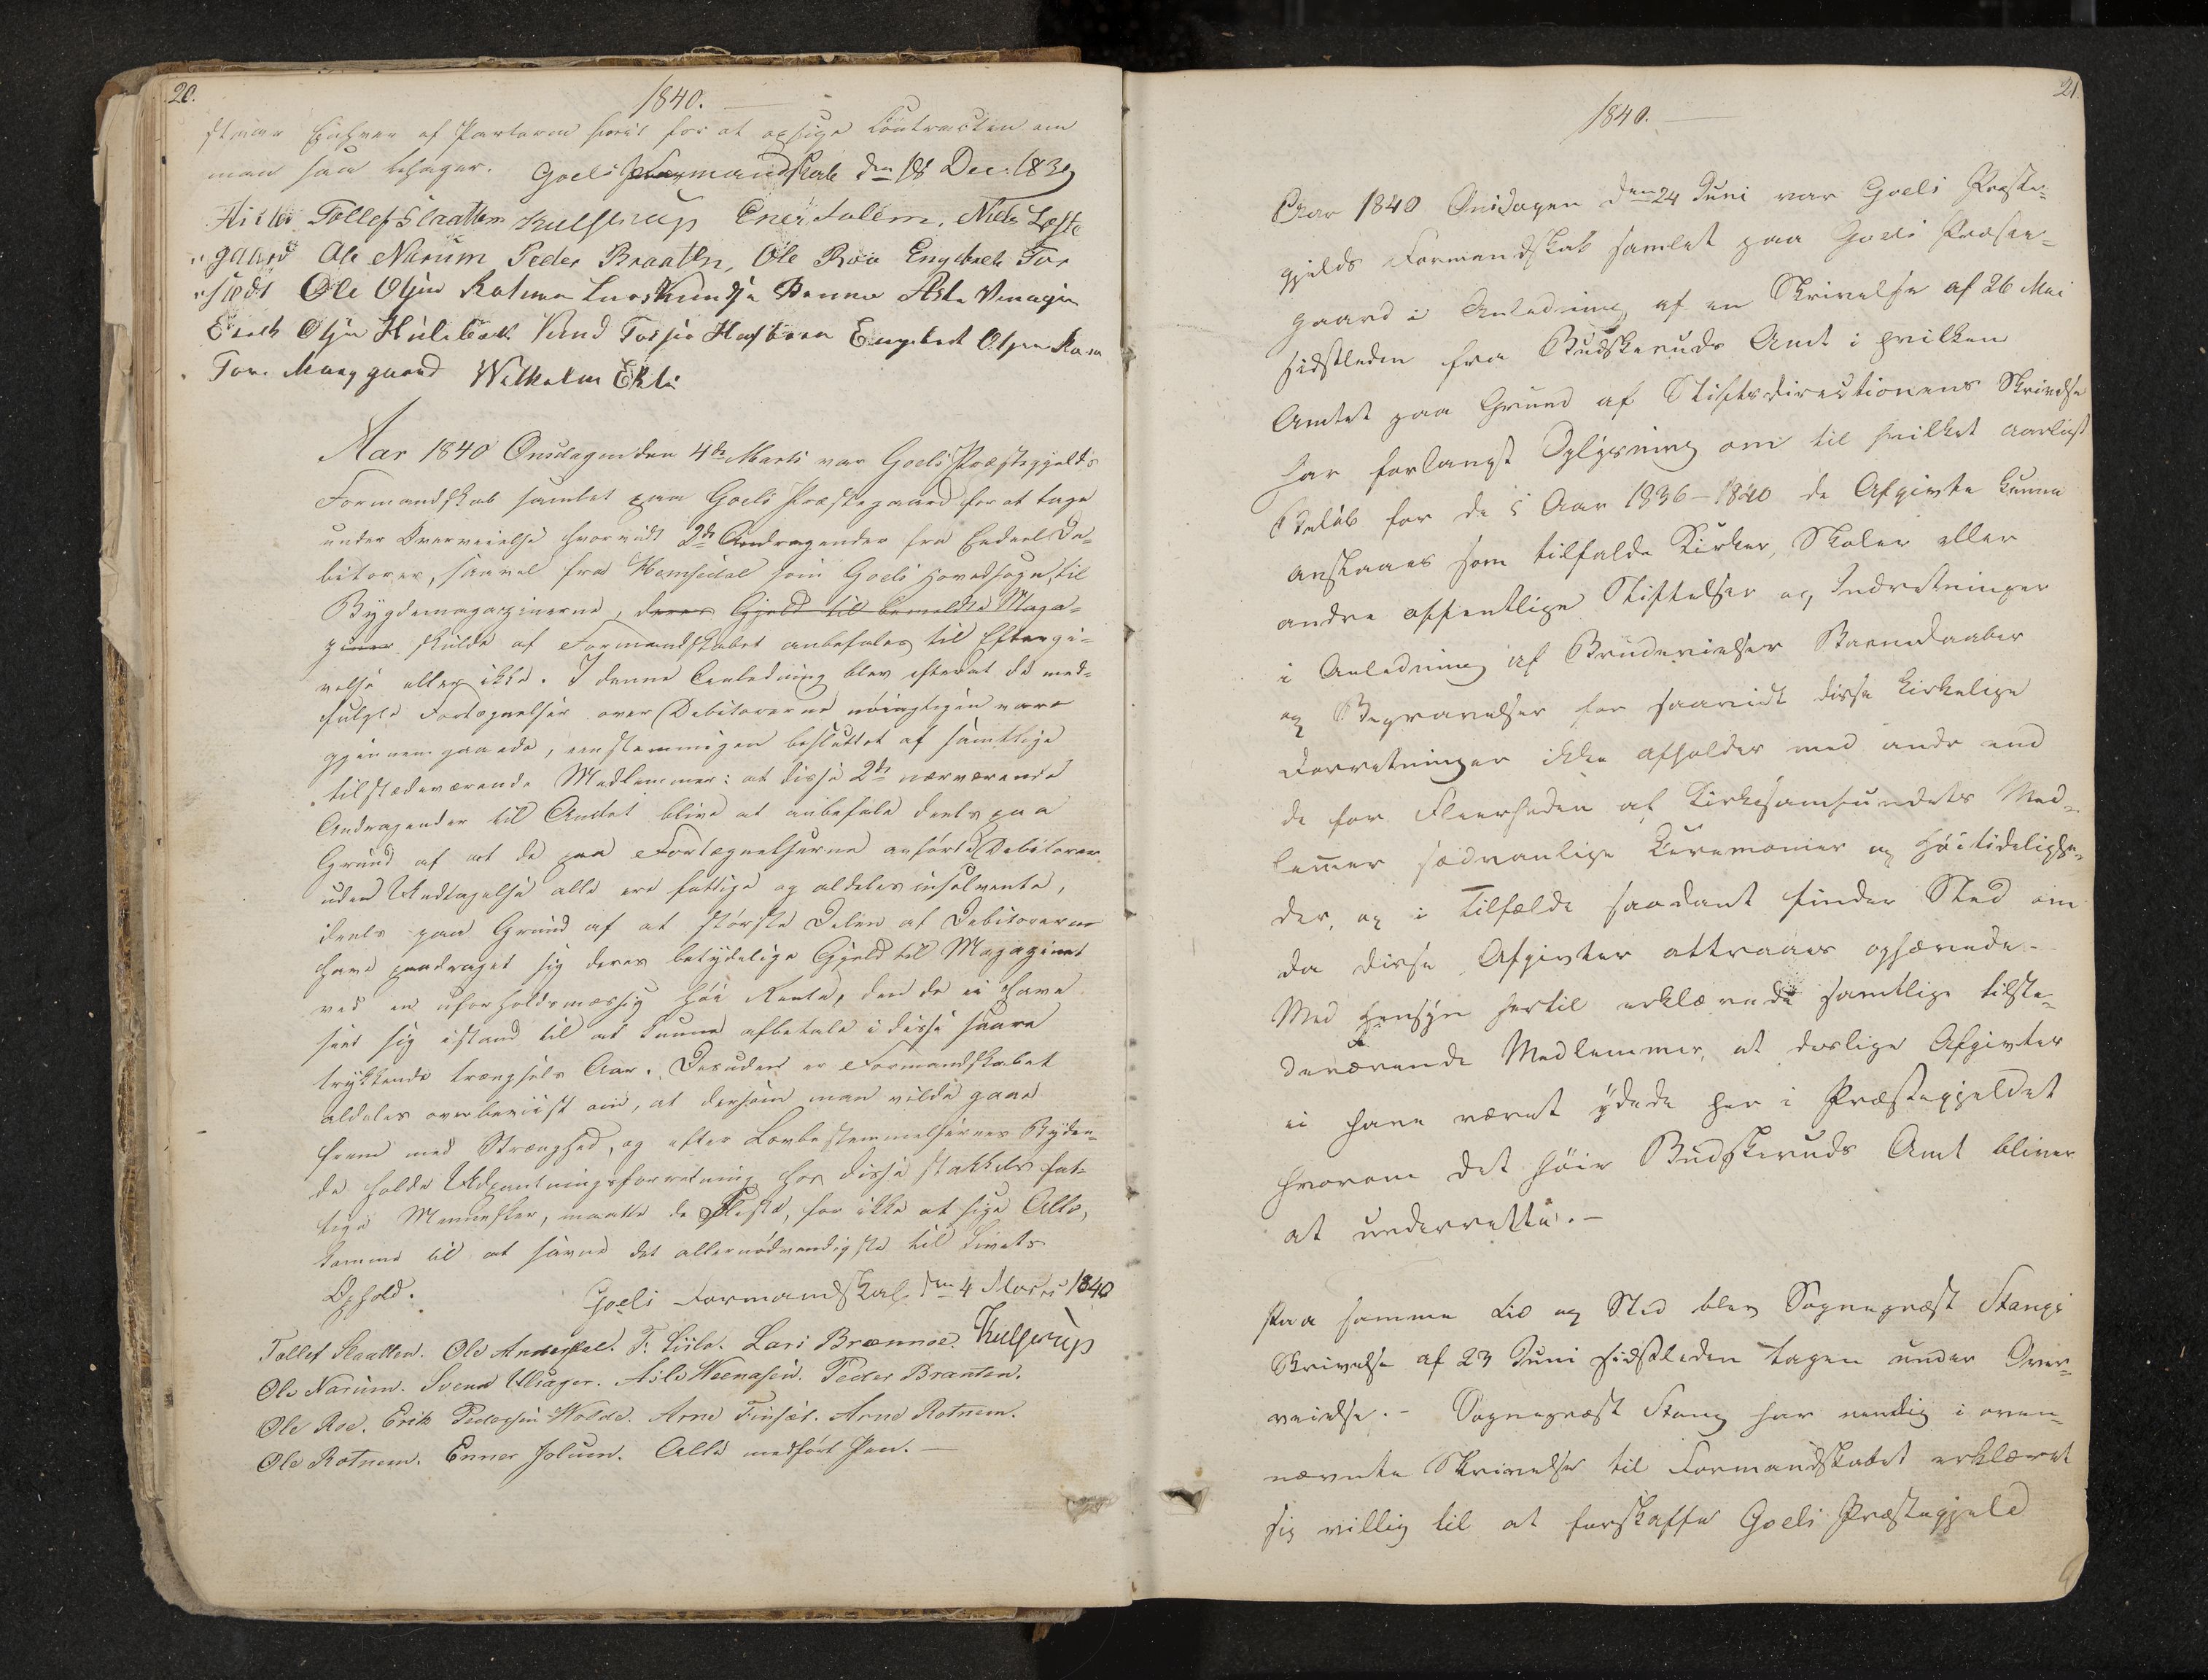 20.
1840.
staaer Enhver af Parterne friit for at opsige Contracten om
man saa behager. Goels Formandskab den 18 Dec. 1839
Tollef Slaatten Kulstrup Ener Solem. Niels Løste
gaard Ole Narum Peder Braatten, Ole Roe Engebreth Tor
Ole Olsen Rotnem Lars
Erich Olsen Hulebak Knud Engebret Olsen
Tor. Moeggaard Wilhelm
Aar 1840 Onsdagen den 4de Marts var Goels Præstegjelds
Formandskab samlet paa Goels Præstegaard for at tage
under Overveielse hvorvidt 2de Andragender fra Endeel De-
bitorer, saavel fra Hemsedal som Goels Hovedsogn, til
Bygdemagazinerne, deres Gjeld til bemeldte Maga-
ziner skulde af Formandskabet anbefales til Eftergi-
velse eller ikke. I denne Anledning blev efterat de med-
fulgte Fortegnelser over Debitorerne nøiagtigen vare
gjennemgaaede, eenstemmigen besluttet af samtlige
tilstædeværende Medlemmer: at disse 2de nærværende
Andragender til Amtet blive at anbefale deels paa
Grund af at de paa Fortegnelserne anførte Debitorer
uden Undtagelse alle ere fattige og aldeles insolvente,
deels paa Grund af at største Delen af Debitorerne
have paadraget sig deres betydelige Gjeld til Magazinet
ved en uforholdsmæssig høi Rente, den de ei have
seet sig istand til at kunne afbetale i disse svare
trykkende trængsels Aar. Desuden er Formandskabet
aldeles overbeviist om, at dersom man vilde gaae
frem med Strænghed, og efter Lovbestemmelsernes Byden-
de holde Udpantningsforretning hos disse stakkels fat-
tige Mennesker, maatte de Fleste, for ikke at sige Alle,
komme til at savne det allernødvendigste til Livets
Ophold.
Goels Formandskab den 4 Marts 1840
Tollef Slaatten. Ole T. Lars Brennoe. Kulstrup
Ole Narum. Svend Ulsager. Asle Peder Braaten.
Ole Roe. Erik Pedersen Wolde. Arne Finset. Arne Rotnem.
Ole Rotnem. Enner Solum. Alle medført Pen.
21.
1840.
Aar 1840 Onsdagen den 24 Juni var Goels Præste-
gjelds Formandskab samlet paa Goels Præste-
gaard i Anledning af en Skrivelse af 26 Mai
sidstleden fra Buskeruds Amt i hvilken
Amtet paa Grund af Stiftsdirectionens Skrivelse
har forlangt Oplysning om til hvilket aarligt
Beløb for de 5 Aar 1836-1840 de Afgivter kunne
anslaaes som tilfalde Kirker, Skoler eller
andre offentlige Stiftelser og Indretninger
i Anledning af Brudevielser Barnedaaber
og Begravelser for saavidt disse kirkelige
Forretninger ikke afholdes med andre end
de for Fleerheden af Kirkesamfundets Med-
lemer sædvanlige Ceremonier og Høitidelighe-
der, og i Tilfælde saadant finder Sted om
da disse Afgivter attraaes ophævede.
Med Hensyn hertil erklærede samtlige tilste-
deværende Medlemmer, at deslige Afgivter
ei have været ydede her i Præstegjeldet
hvorom det høie Buskeruds Amt bliver
at underrette.
Paa samme Tid og Sted blev Sognepræst Stangs
Skrivelse af 23 Juni sidstleden tagen under Over-
veielse. - Sognepræst Stang har nemlig i oven-
nævnte Skrivelse til Formandskabet erklæret
sig villig til at forskaffe Goels Præstegjeld